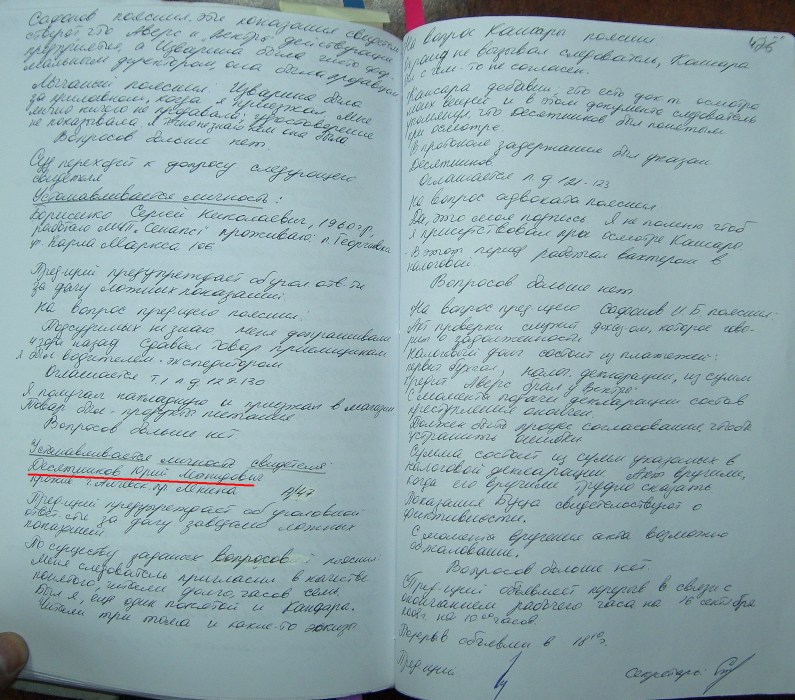 Садонов пояснил, эти показания свидетель-
ствуют, что Аверс и Вектор действующие
предприятия, а Изварина была
директором, она была продавцом
пояснил: Изварина была
за прилавком, когда я приезжал мне
лично ничего не продавали, удостоверение
не показывала, я не знаю кем она была
Вопросов больше нет.
Суд переходит к допросу следующего
свидетеля
Устанавливается личность:
Борисенко Сергей Николаевич, 1960 г.р,
работаю МЧП. проживаю: п. Георгиевка
ул. Карла Маркса 106
Пред-щий предупреждает об угол отв-ти
за дачу ложных показаний.
На вопрос пред-щего пояснил:
Подсудимых не знаю, меня допрашивали
года назад сдавал товар приемщикам
я был водителем-экспедитором
Оглашается т.1 л.д 129.130
Я получал накладную и приезжал в магазин
Товар был - продукты питания
Вопросов больше нет
Устанавливается личность свидетеля:
Десятников Юрий
прожив г. пр Ленина 47
Пред-щий предупреждает об уголовной
ответ-сти за дачу заведомо ложных
показаний
По существу заданных вопросов пояснил:
Меня следователь пригласил в качестве
понятого, читали долго, часов семь
Был я, еще один понятой и Кандара.
Читали три тома и какие-то эскизы
426
На вопрос Кашары пояснил
не вызывал следователь, Кашара
с чем-то не согласен.
Кашара добавил, что есть док-т осмотра
вещей и в этом документе следователь
что Десятников был понятым
при осмотре.
В протоколе задержания был указан
Десятников
Оглашается л.д 121-123
На вопрос адвоката пояснил
Да, это моя подпись Я не помню чтоб
я присутствовал при осмотре Кашара
В этот период работал вахтером в
налоговой
Вопросов больше нет
На вопрос пред-щего Садонов И.Б. пояснил:
Акт проверки служит доказ-ом, которое гово-
рит о задолженности
Налоговый долг состоит из платежей:
налог. декларации, из сумм
кредит Аверс брал у Вектро.
С момента подачи декларации состав
преступления окончен.
Должен быть процес согласования, чтобы
устранить ошибки.
Сумма состоит из сумм указаных в
налоговой декларации. Акт вручили,
когда его вручили трудно сказать
Показания Буца свидетельствуют о
фиктивности.
С момента вручения акта возможно
обжалование.
Вопросов больше нет.
Пред-щий объявляет перерыв в связи с
окончанием рабочего часа на 16 октября
на 10 00 часов
Перерыв объявлен в 18 10.
Пред-щий Секретарь